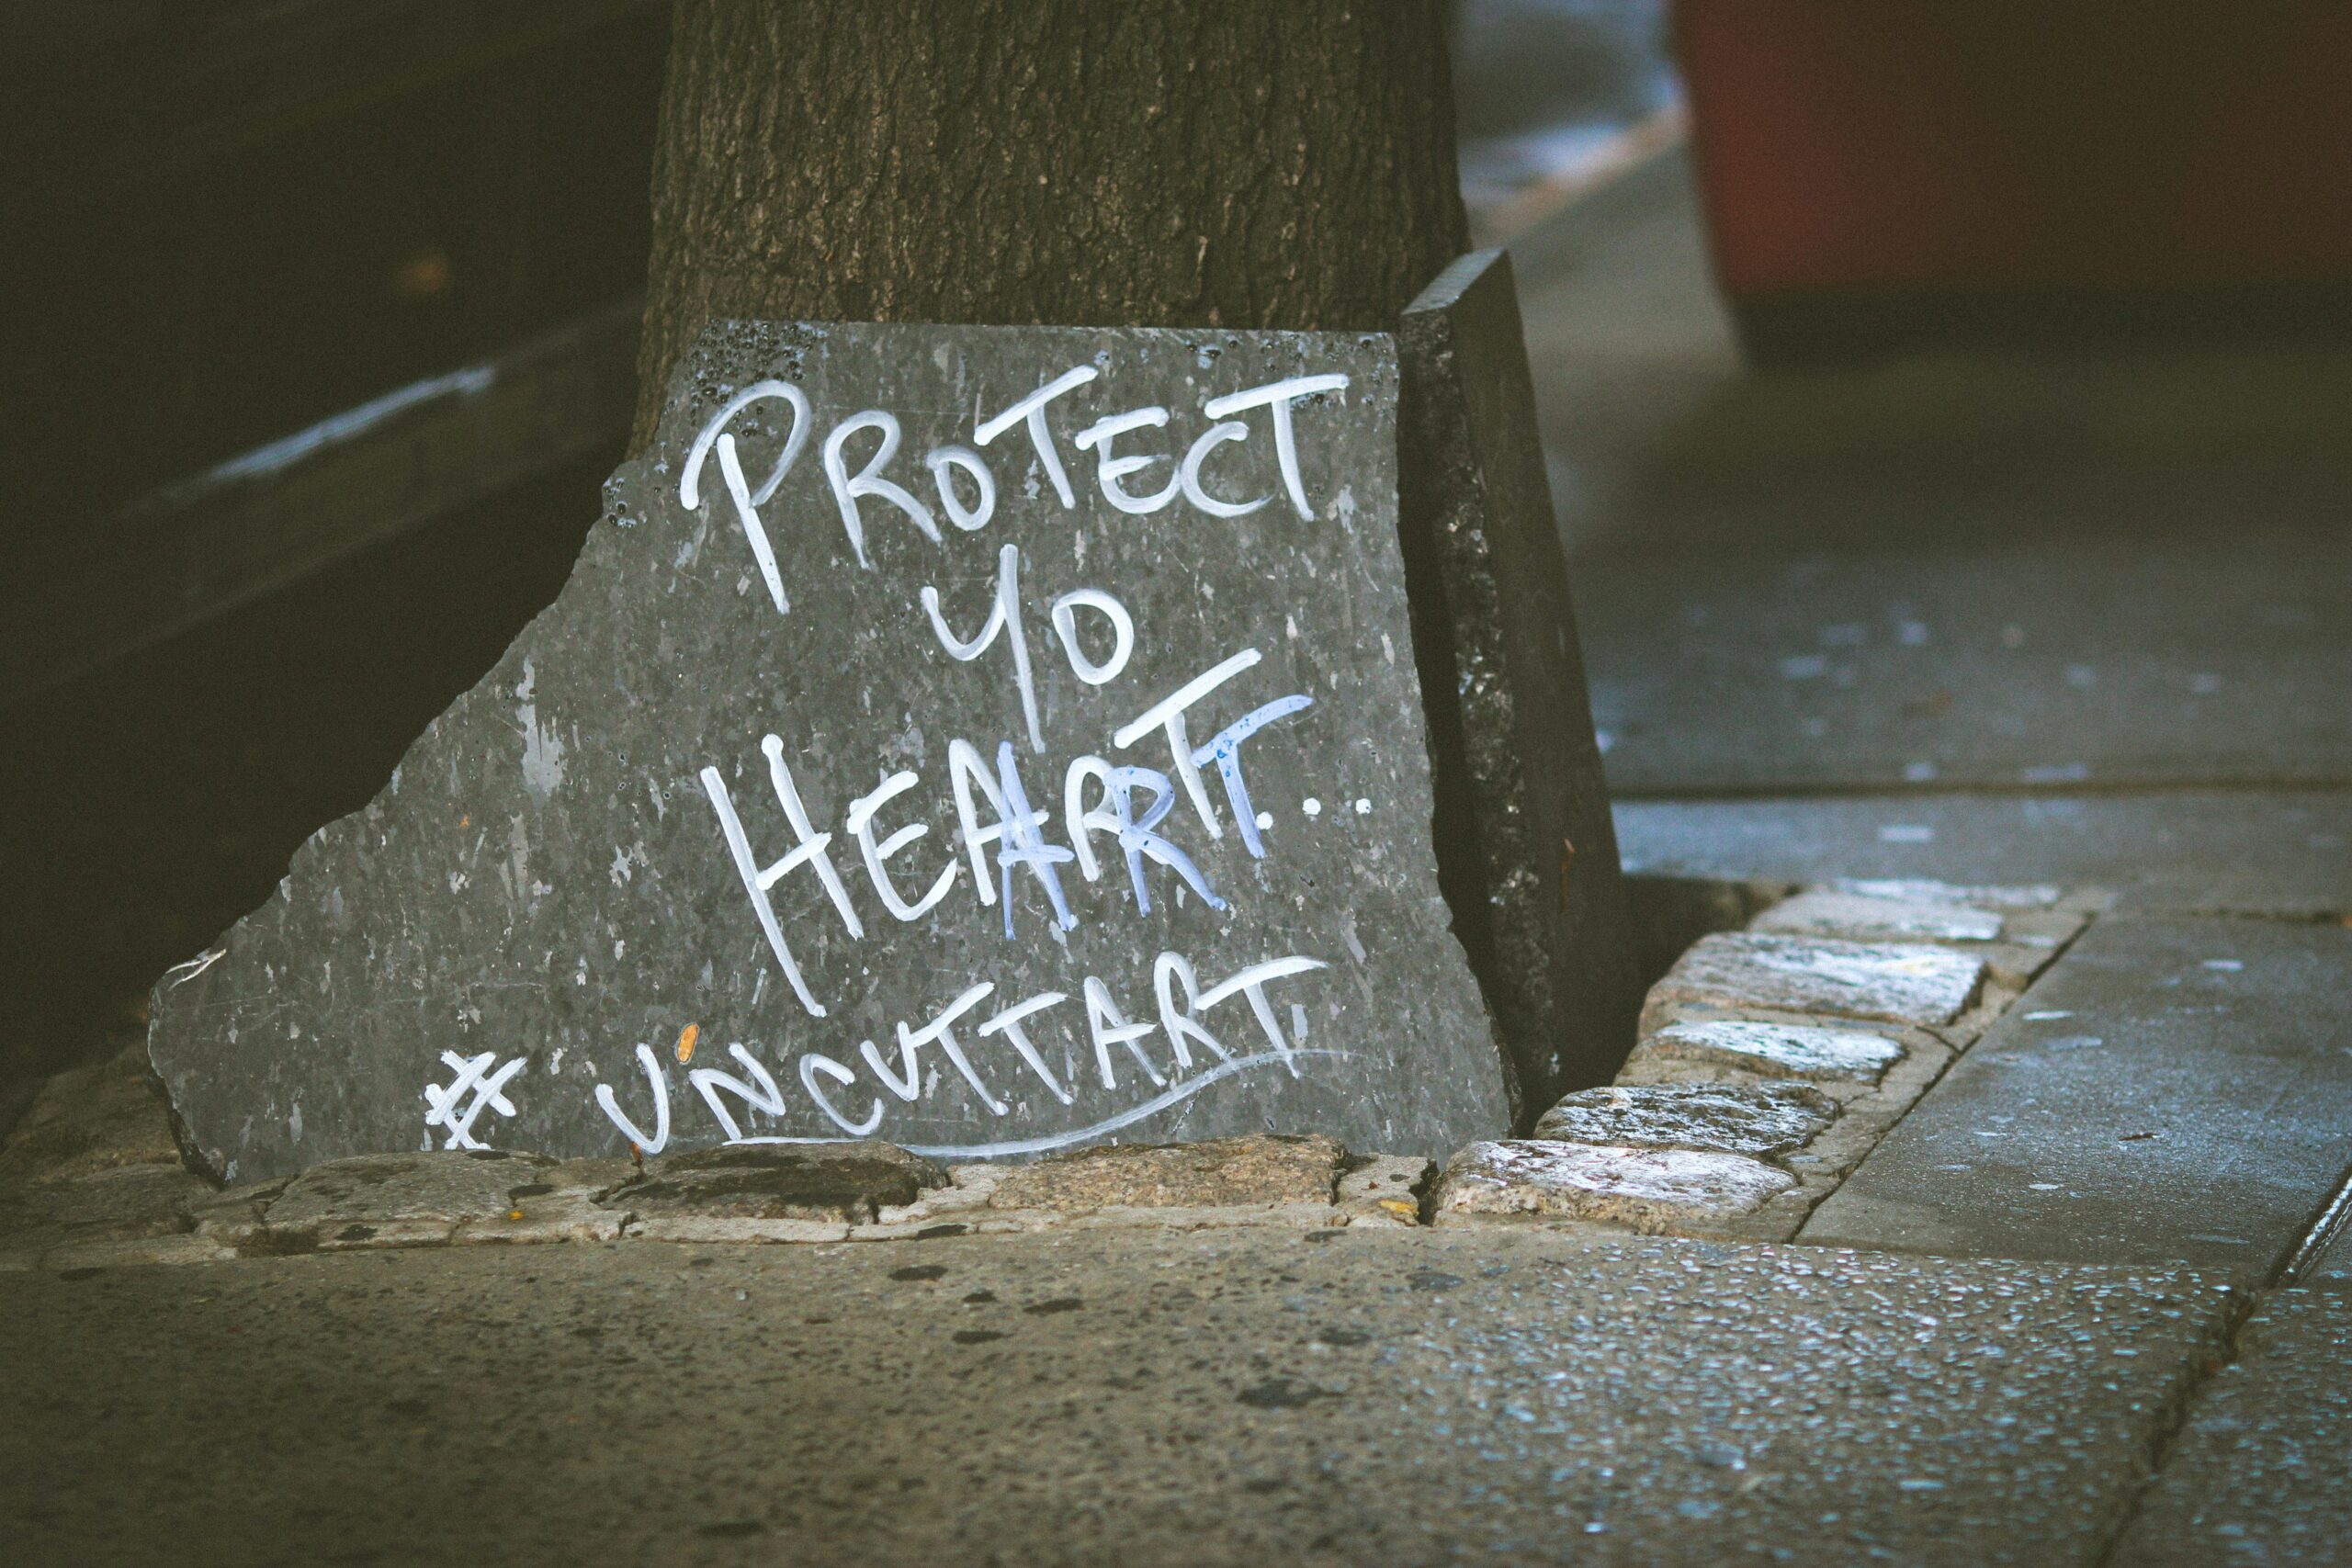 PROTECT
YO
HEART...
#UNCUTTART